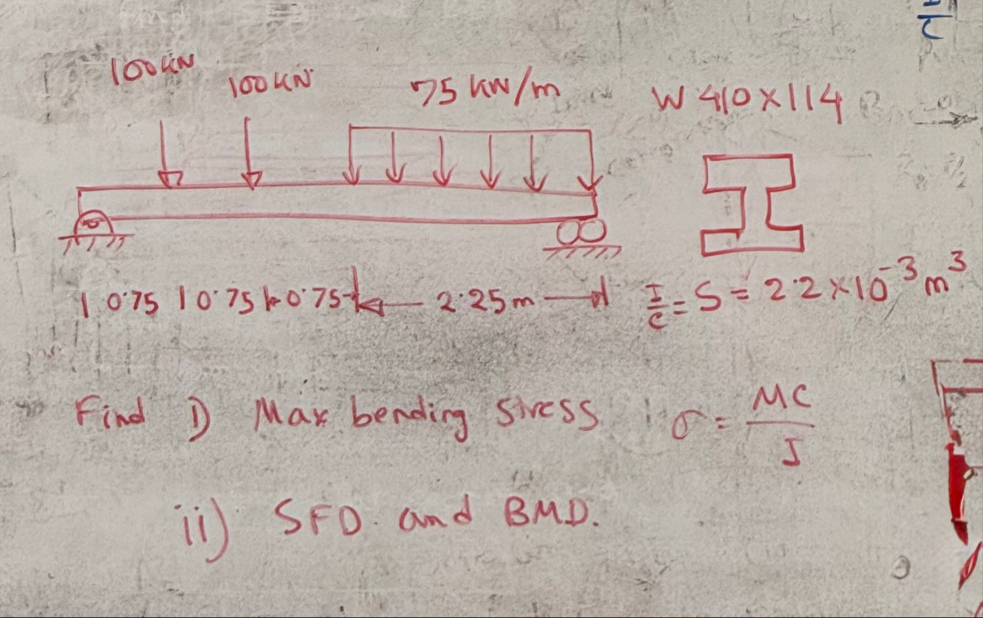 100kN
100kN
75 kN/m
W 410x114
0.75 0.75 0.75 2.25m
I/c = S = 2.2 x 10⁻³ m³
Find i) Max bending stress σ = MC/I
ii) SFD and BMD.